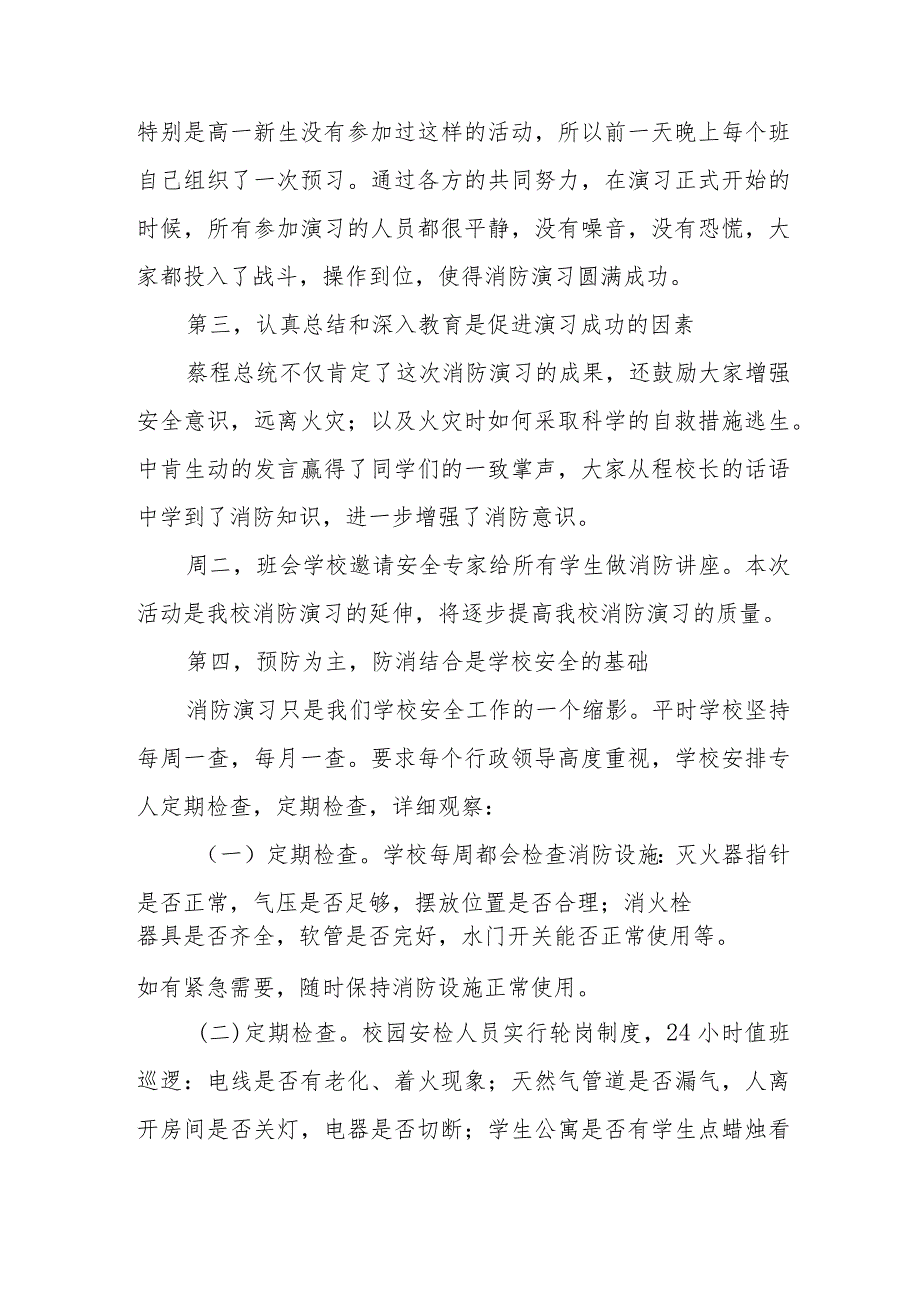 特别是高一新生没有参加过这样的活动，所以前一天晚上每个班
自己组织了一次预习。通过各方的共同努力，在演习正式开始的
时候，所有参加演习的人员都很平静，没有噪音，没有恐慌，大
家都投入了战斗，操作到位，使得消防演习圆满成功。
第三，认真总结和深入教育是促进演习成功的因素
蔡程总统不仅肯定了这次消防演习的成果，还鼓励大家增强
安全意识，远离火灾；以及火灾时如何采取科学的自救措施逃生。
中肯生动的发言赢得了同学们的一致掌声，大家从程校长的话语
中学到了消防知识，进一步增强了消防意识。
周二，班会学校邀请安全专家给所有学生做消防讲座。本次
活动是我校消防演习的延伸，将逐步提高我校消防演习的质量。
第四，预防为主，防消结合是学校安全的基础
消防演习只是我们学校安全工作的一个缩影。平时学校坚持
每周一查，每月一查。要求每个行政领导高度重视，学校安排专
人定期检查，定期检查，详细观察：
（一）定期检查。学校每周都会检查消防设施：灭火器指针
是否正常，气压是否足够，摆放位置是否合理；消火栓
器具是否齐全，软管是否完好，水门开关能否正常使用等。
如有紧急需要，随时保持消防设施正常使用。
(二)定期检查。校园安检人员实行轮岗制度，24小时值班
巡逻：电线是否有老化、着火现象；天然气管道是否漏气，人离
开房间是否关灯，电器是否切断；学生公寓是否有学生点蜡烛看